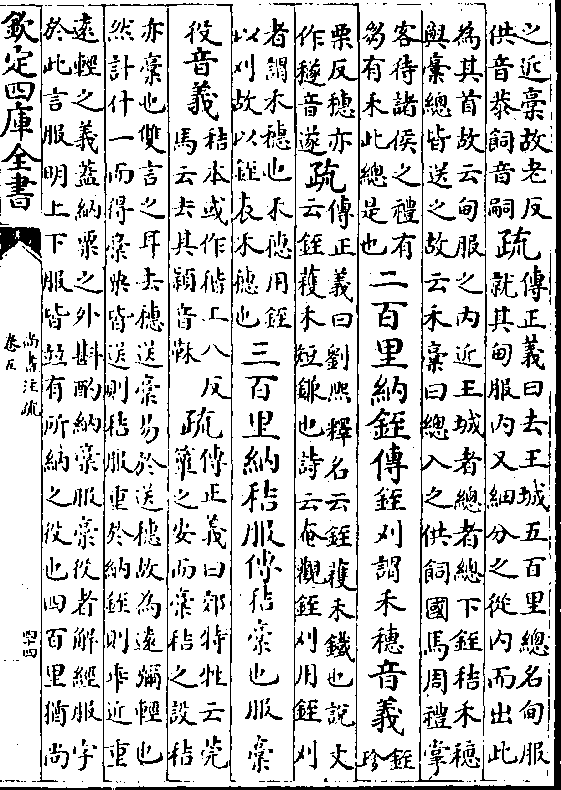 之近藁故老反
供音恭飼音嗣
疏
傳正義曰去王城五百里總名甸服
就其甸服内又細分之從内而出此
為其首故云甸服之内近王城者總者總下銍秸禾穗
與藁總皆送之故云禾藁曰總入之供飼國馬周禮掌
客待諸侯之禮有
芻有禾此總是也
二百里納銍傳銍刈謂禾穗音義
銍
珍
栗反穗亦
作穟音遂
疏
傳正義曰劉熙釋名云銍穫禾鐵也說文
云銍穫禾短鎌也詩云奄觀銍刈用銍刈
者謂禾穗也禾穗用銍
以刈故以銍表禾穗也
三百里納秸服傳秸藁也服藁
役音義
秸本或作稭工八反
馬云去其穎音鞂
疏
傳正義曰郊特牲云莞
簟之安而藁秸之設秸
亦藁也雙言之耳去穗送藁易於送穗故為遠彌輕也
然計什一而得藁粟皆送則秸服重於納銍則乖近重
遠輕之義蓋納粟之外斟酌納藁服藁役者解經服字
於此言服明上下服皆並有所納之役也四百里猶尚
欽定四庫全書
尚書注疏
卷五